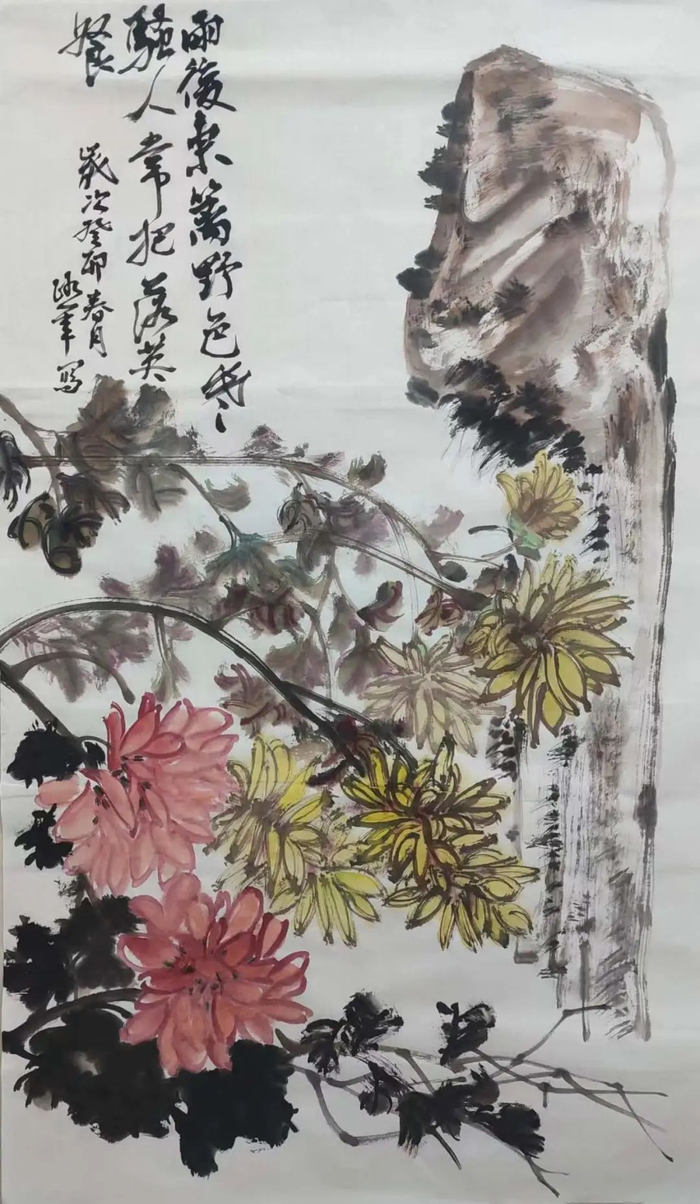 雨後東篱野色寒
騷人常把落英
餐
歲次癸卯春月
寫